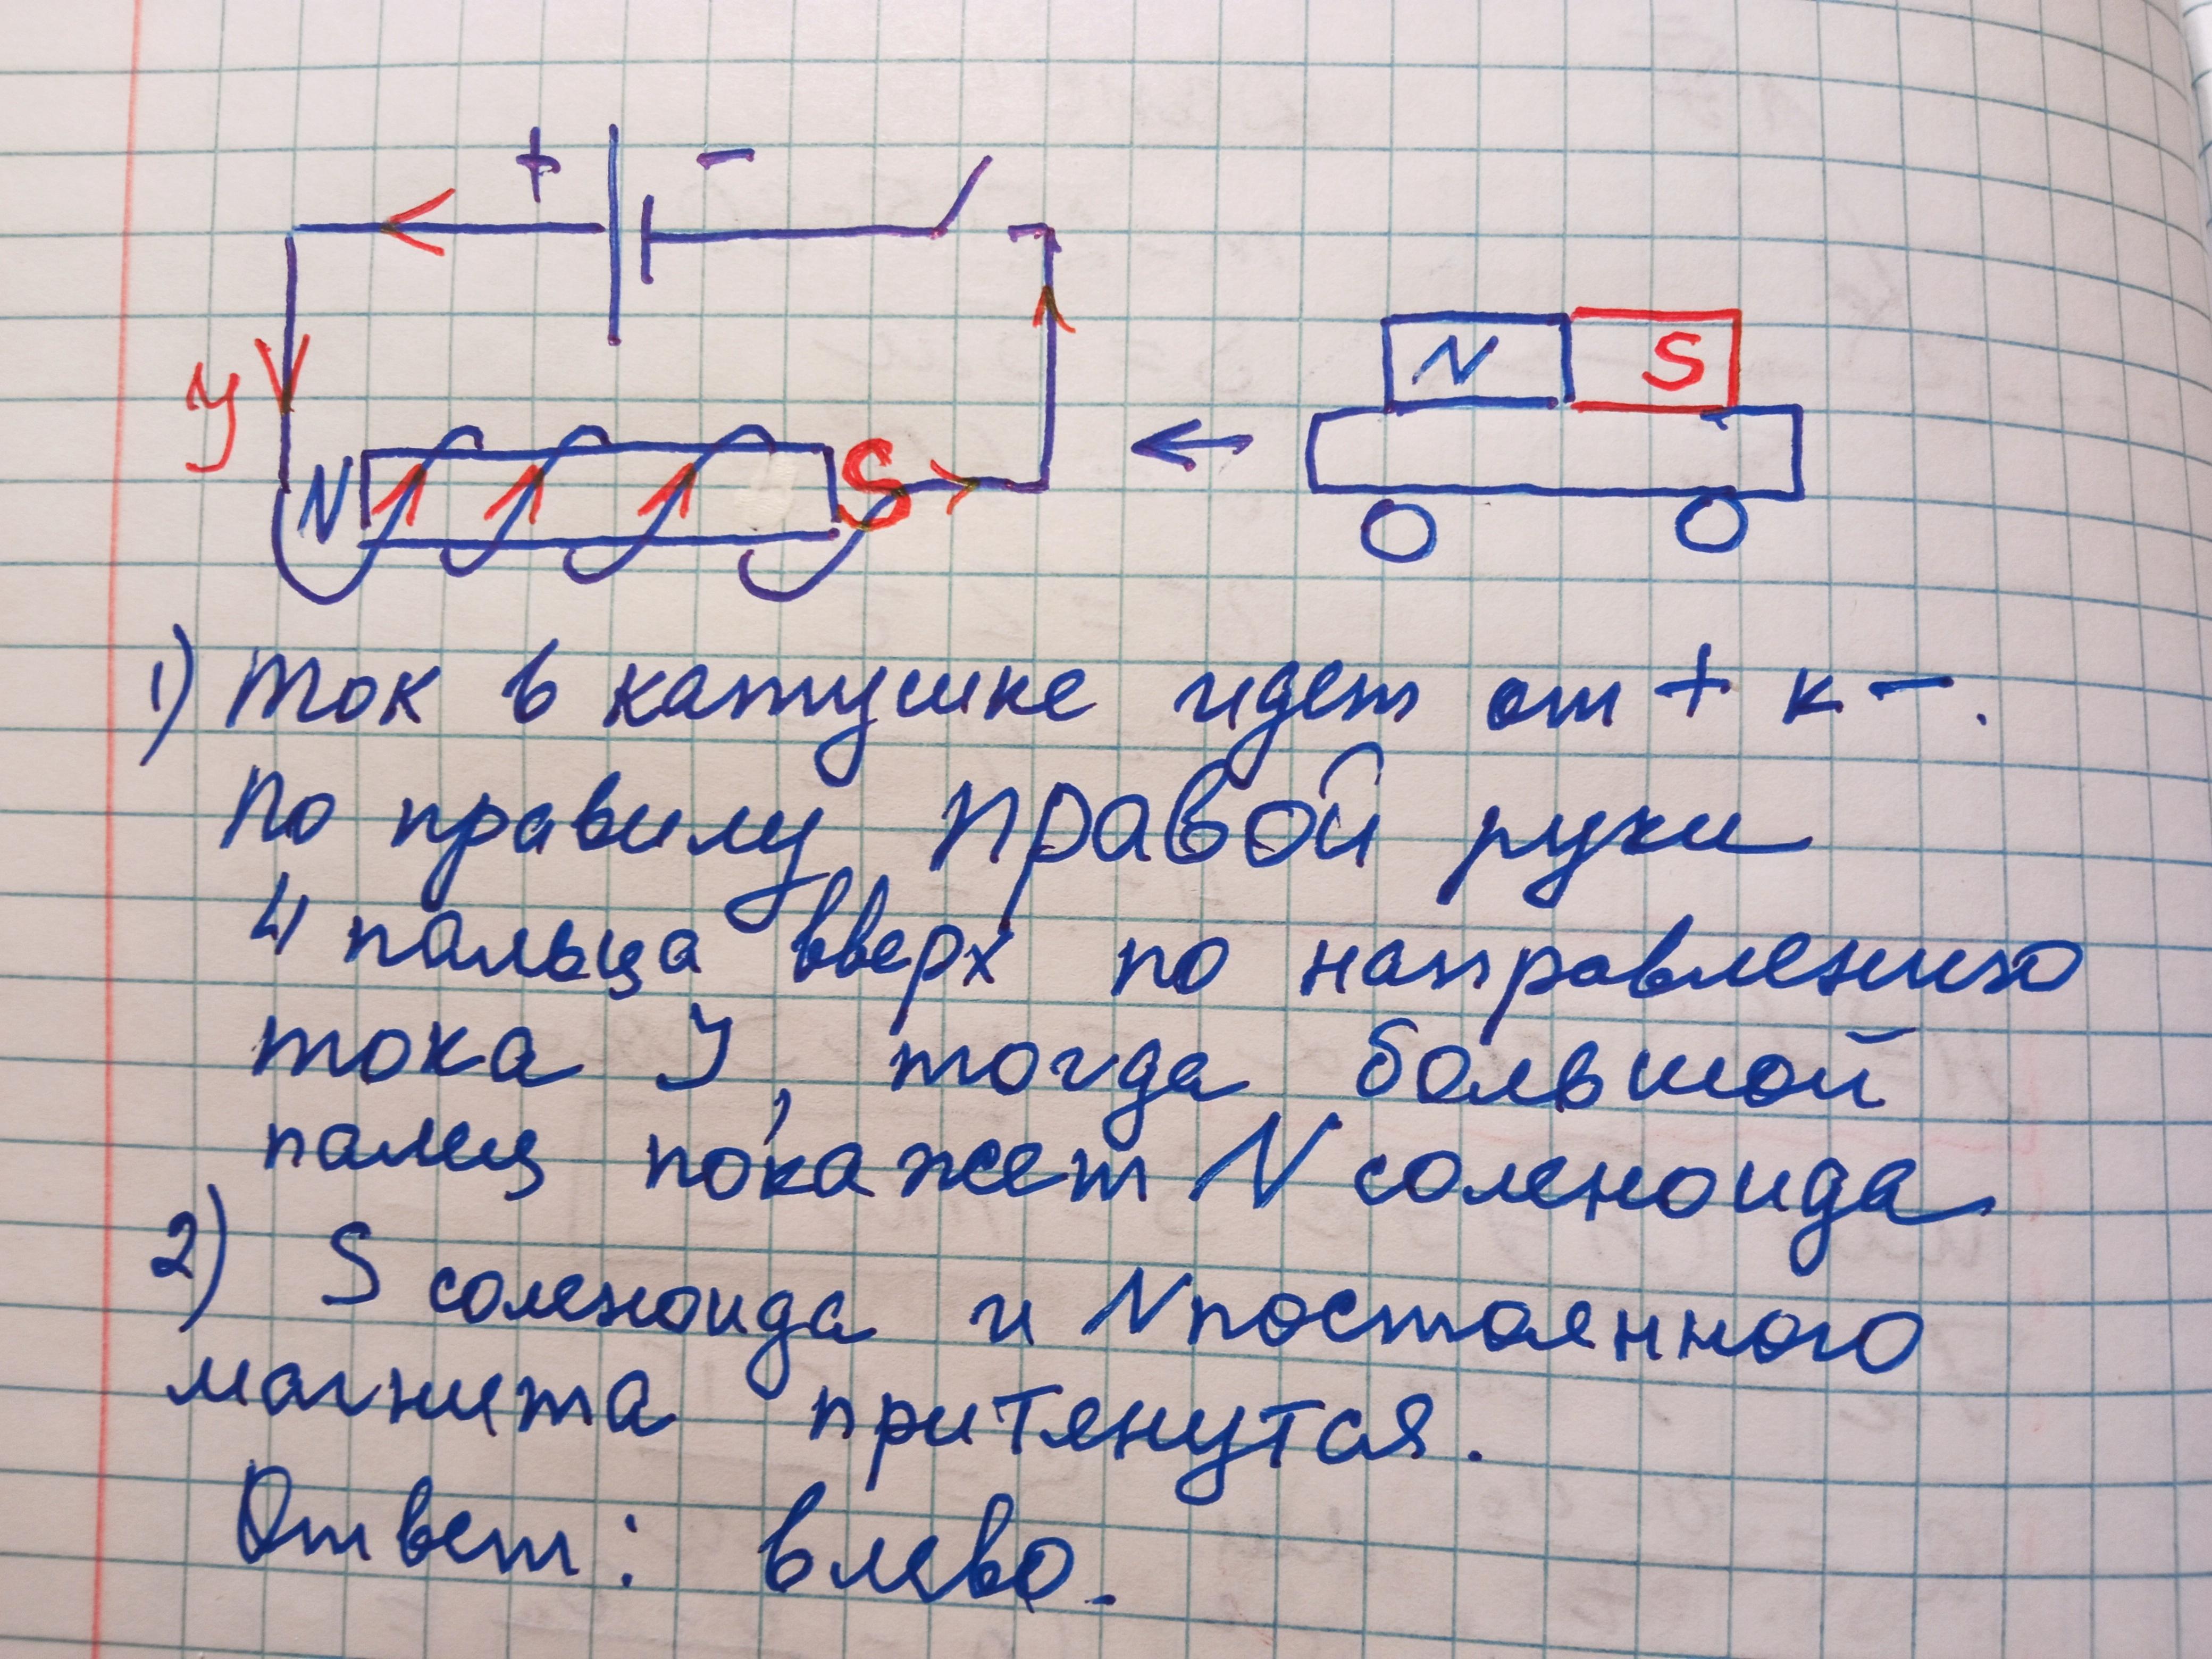 + -
У
N S
N S
1) Ток в катушке идет от + к -.
По правилу правой руки
4 пальца вверх по направлению
тока У, тогда большой
палец покажет N соленоида
2) S соленоида и N постоянного
магнита притянутся.
Ответ: влево.